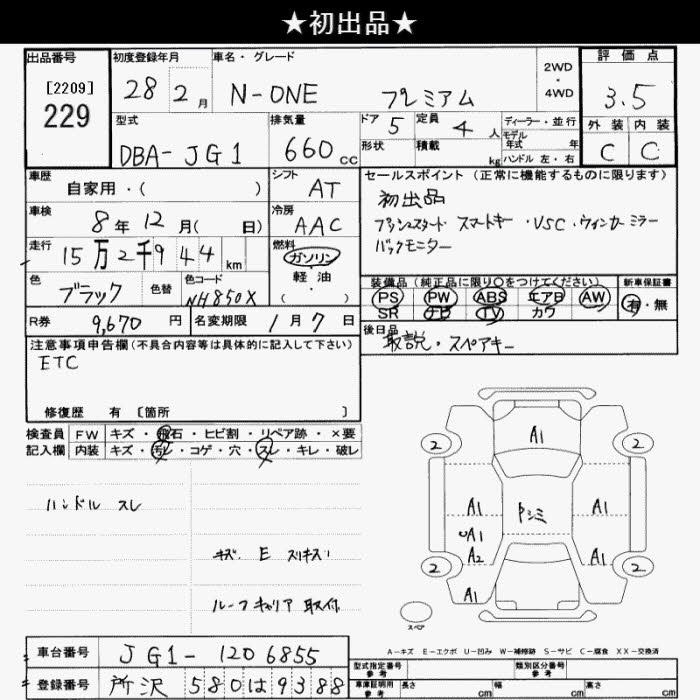 ★初出品★
出品番号
[2209]
229
初度登録年月
28 2月
車名・グレード
N-ONE プレミアム
2WD
・
4WD
評価点
3.5
型式
DBA-JG1
排気量
660cc
ドア 5
定員 4人
形状
積載 kg
ディーラー・並行
モデル年式 年
ハンドル 左・右
外装 内装
C C
車歴
自家用・( )
シフト
AT
車検
8年12月( 日)
冷房
AAC
走行
15万2千944km
燃料
ガソリン
軽油
( )
色
ブラック
色替
色コード
NH850X
R券
9,670円
名変期限
1月7日
セールスポイント(正常に機能するものに限ります)
初出品
プッシュスタート スマートキー・VSC・ウィンカーミラー
バックモニター
装備品(純正品に限り○をつけてください)
PS PW ABS エアB AW
SR ナビ TV カワ
新車保証書
有・無
後日品
取説・スペアキー
注意事項申告欄(不具合内容等は具体的に記入して下さい)
ETC
修復歴 有 [箇所 ]
検査員
記入欄
FW キズ・飛石・ヒビ割・リペア跡・×要
内装 キズ・汚レ・コゲ・穴・スレ・キレ・破レ
ハンドル スレ
キズ E スリキズ
ルーフキャリア 取付
2 A1 2
A1 A1
UA1
A2 A1
2 2
A1
スペア
A-キズ E-エクボ U-凹み W-補修跡 S-サビ C-腐食 XX-交換済
車台番号
JG1-1206855
登録番号
所沢 580 は 9388
型式指定番号
参考
類別区分番号
参考
車庫証明用
参考
長さ cm 幅 cm 高さ cm